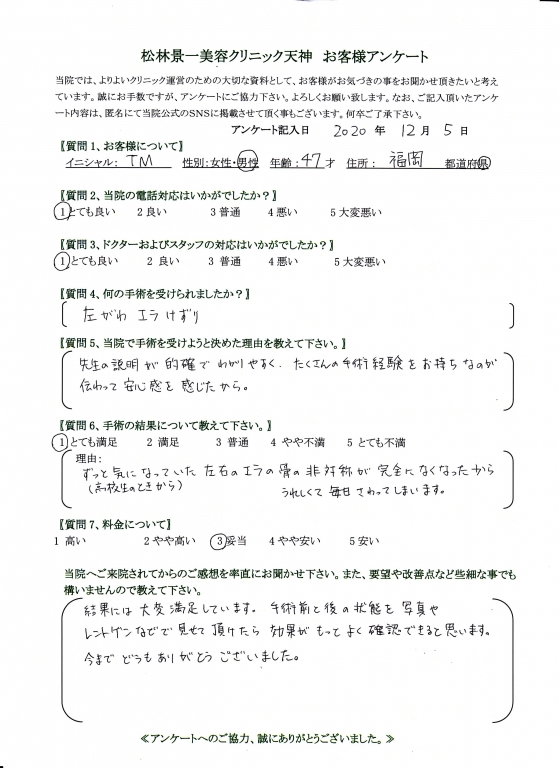 松林景一美容クリニック天神　お客様アンケート
当院では、よりよいクリニック運営のための大切な資料として、お客様がお気づきの事をお聞かせ頂きたいと考え
ています。誠にお手数ですが、アンケートにご協力下さい。よろしくお願い致します。なお、ご記入頂いたアンケ
ート内容は、匿名にて当院公式のSNSに掲載させて頂く事もございます。何卒ご了承下さい。
アンケート記入日　2020 年 12 月 5 日
【質問1、お客様について】
イニシャル： TM　性別：女性・男性　年齢：47才　住所： 福岡　都道府県
【質問2、当院の電話対応はいかがでしたか？】
1とても良い　2 良い　3 普通　4 悪い　5 大変悪い
【質問3、ドクターおよびスタッフの対応はいかがでしたか？】
1とても良い　2 良い　3 普通　4 悪い　5 大変悪い
【質問4、何の手術を受けられましたか？】
左がわ エラけずり
【質問5、当院で手術を受けようと決めた理由を教えて下さい。】
先生の説明が的確でわかりやすく、たくさんの手術経験をお持ちなのが
伝わって安心感を感じたから。
【質問6、手術の結果について教えて下さい。】
1とても満足　2 満足　3 普通　4 やや不満　5 とても不満
理由：
ずっと気になっていた左右のエラの骨の非対称が完全になくなったから
(高校生のときから)　うれしくて毎日さわってしまいます。
【質問7、料金について】
1 高い　2 やや高い　3妥当　4 やや安い　5 安い
当院へご来院されてからのご感想を率直にお聞かせ下さい。また、要望や改善点など些細な事でも
構いませんので教えて下さい。
結果には大変満足しています。手術前と後の状態を写真や
レントゲンなどで見せて頂けたら効果がもっとよく確認できると思います。
今までどうもありがとうございました。
≪アンケートへのご協力、誠にありがとうございました。≫